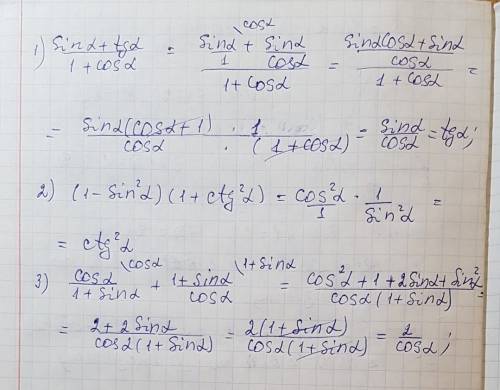 1) (sinα + tgα)/(1 + cosα) = (sinα/1 \cosα + sinα/cosα)/(1 + cosα) = ((sinα cosα + sinα)/cosα)/(1 + cosα) =
= (sinα(cosα + 1) · 1)/(cosα · (1 + cosα)) = sinα/cosα = tgα;
2) (1 - sin²α)(1 + ctg²α) = cos²α/1 · 1/sin²α =
= ctg²α
3) cosα/(1 + sinα) \cosα + (1 + sinα)/cosα \1 + sinα = (cos²α + 1 + 2sinα + sin²α)/(cosα(1 + sinα)) =
= (2 + 2sinα)/(cosα(1 + sinα)) = 2(1 + sinα)/(cosα(1 + sinα)) = 2/cosα;